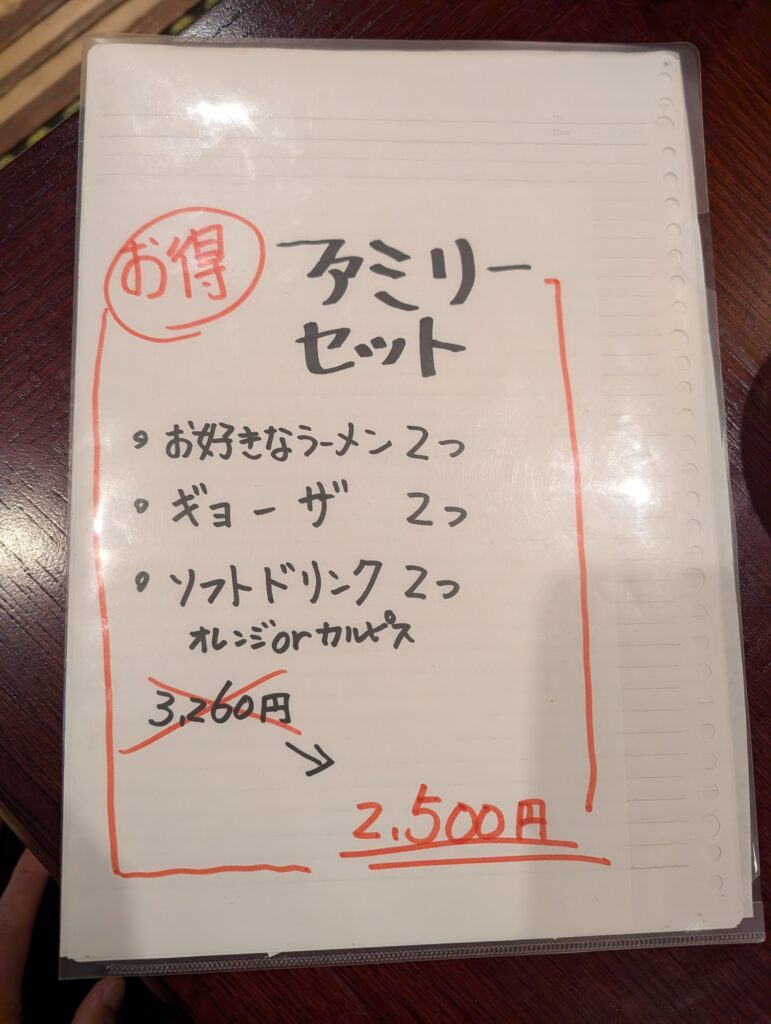 お得
ファミリー
セット
お好きなラーメン 2つ
ギョーザ 2つ
ソフトドリンク 2つ
オレンジorカルピス
3,260円
2,500円